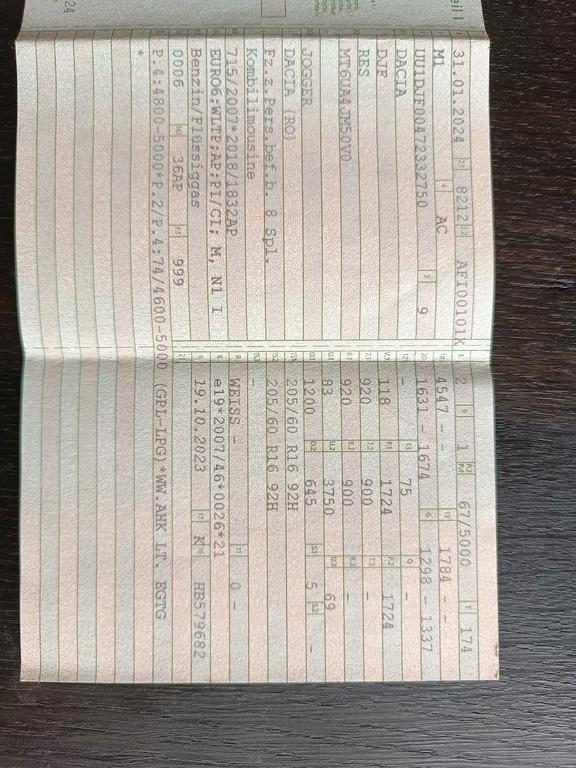 eil I
31.01.2024 8212 AFI00101X 2 1 67/5000 174
M1 AC 4547 - - 1784 - -
UU1DJF00472332750 9 1631 - 1674 1298 - 1337
DACIA - 75 -
DJF 118 1724 1724
RES 920 900 -
MT6UA4JM50V0 920 900 -
83 3750 69
JOGGER 1200 645 5 -
DACIA (RO) 205/60 R16 92H
Fz.z.Pers.bef.b. 8 Spl. 205/60 R16 92H
Kombilimousine -
715/2007*2018/1832AP WEISS - 0 -
EURO6;WLTP;AP;PI/CI; M, N1 I e19*2007/46*0026*21
Benzin/Flüssiggas 19.10.2023 K HB579682
0006 36AP 999
P.4:4800-5000*P.2/P.4:74/4600-5000 (GPL-LPG)*WW.AHK LT. EGTG
*